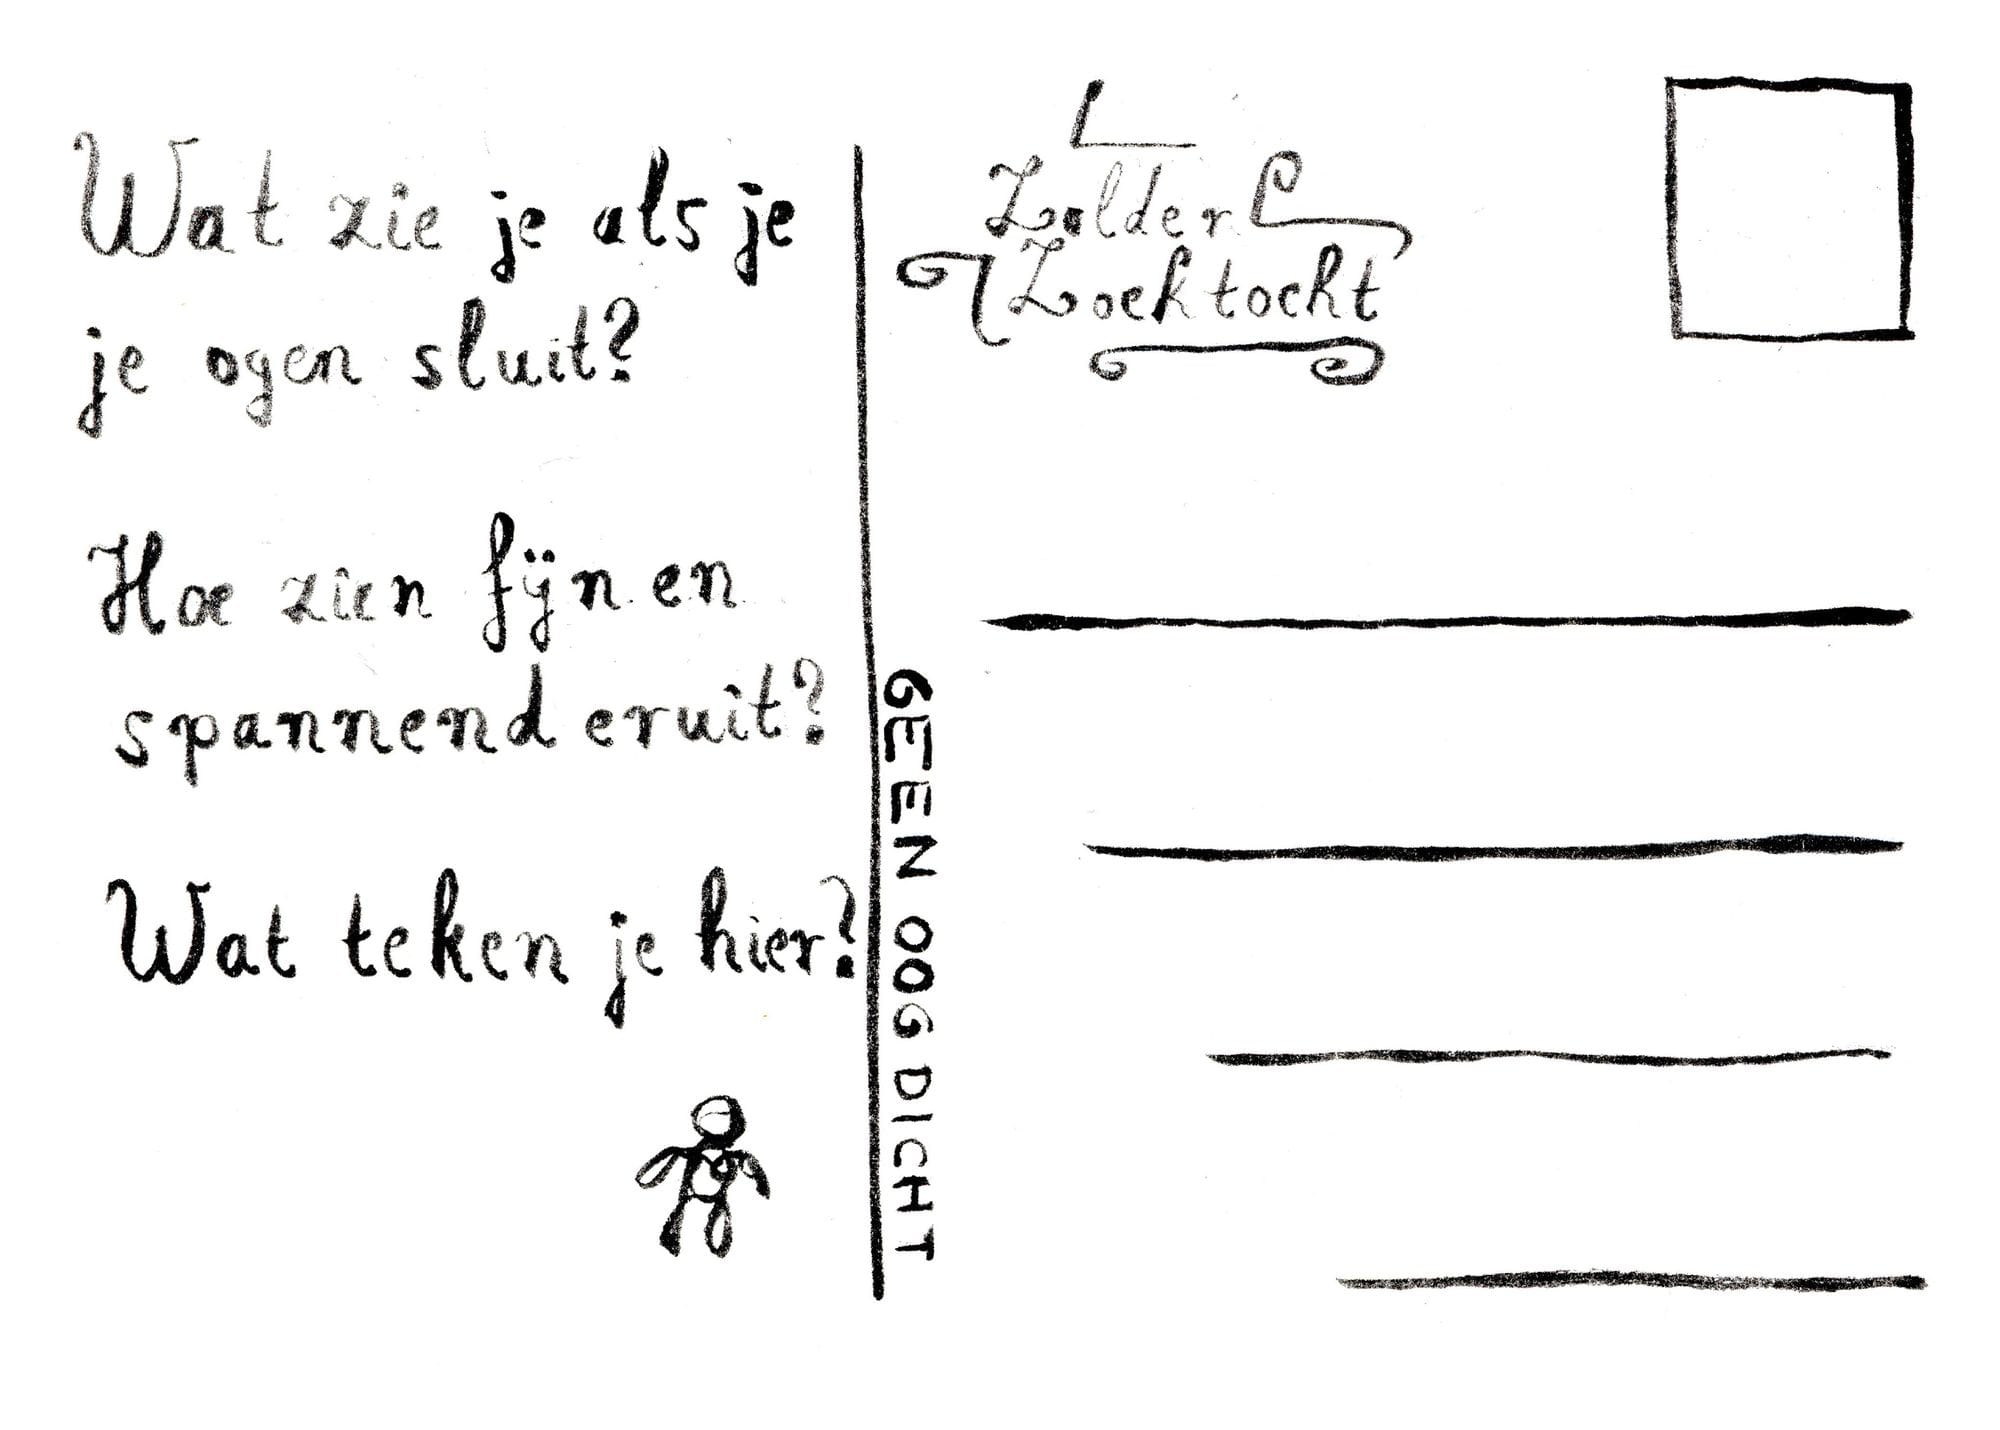 Wat zie je als je
je ogen sluit?
Hoe zien fijn en
spannend eruit?
Wat teken je hier?
Zolder
Zoektocht
GEEN OOG DICHT